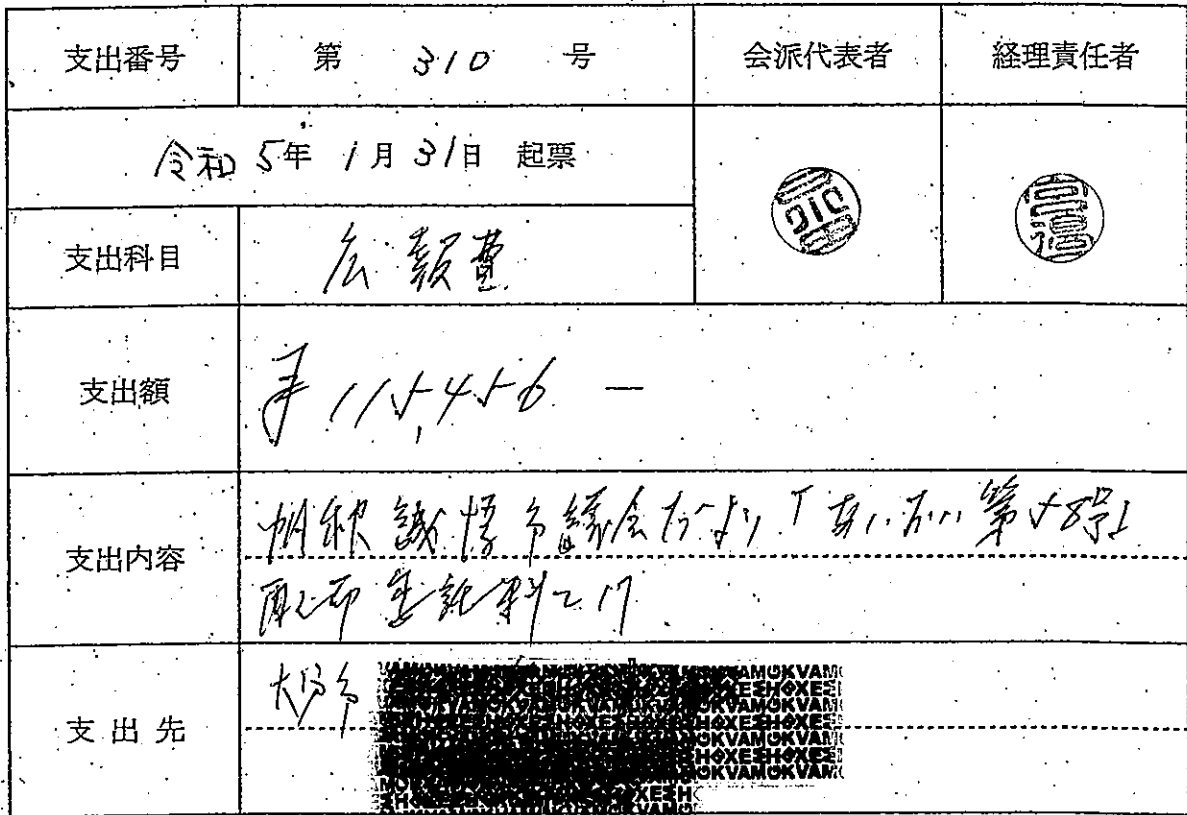 支出番号 第 310 号 会派代表者 経理責任者
令和 5年 1月 31日 起票
支出科目 広報費
支出額 115,456 ―
支出内容 誠 市議会だより 第58号
配布委託料
支出先 大